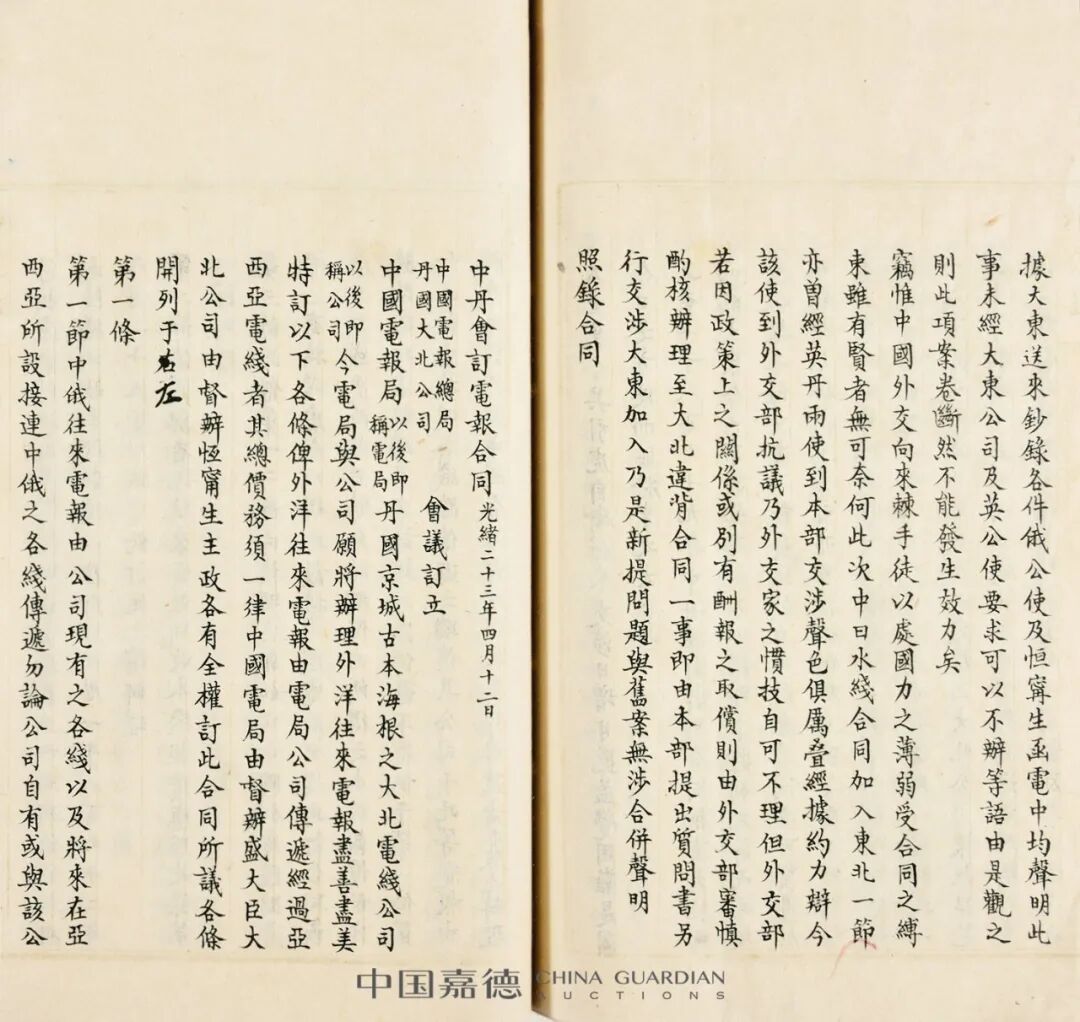 據大東送來鈔錄各件俄公使及恒寧生函電中均聲明此
事未經大東公司及英公使要求可以不辦等語由是觀之
則此項案卷斷然不能發生效力矣
竊惟中國外交向來棘手徒以處國力之薄弱受合同之縛
束雖有賢者無可奈何此次中日水綫合同加入東北一節
亦曾經英丹兩使到本部交涉聲色俱厲叠經據約力辯今
該使到外交部抗議乃外交家之慣技自可不理但外交部
若因政策上之關係或别有酬報之取償則由外交部審慎
酌核辦理至大北違背合同一事即由本部提出質問書另
行交涉大東加入乃是新提問題與舊案無涉合併聲明
照錄合同
中丹會訂電報合同 光緒二十三年四月十二日
中國電報總局
丹國大北公司 會議訂立
中國電報局以後即稱電局丹國京城古本海根之大北電綫公司
以後即稱公司今電局與公司願將辦理外洋往來電報盡善盡美
特訂以下各條俾外洋往來電報由電局公司傳遞經過亞
西亞電綫者其總價務須一律中國電局由督辦盛大臣大
北公司由督辦恆甯生主政各有全權訂此合同所議各條
開列于左
第一條
第一節中俄往來電報由公司現有之各綫以及將來在亞
西亞所設接連中俄之各綫傳遞勿論公司自有或與該公
中国嘉德 CHINA GUARDIAN
AUCTIONS